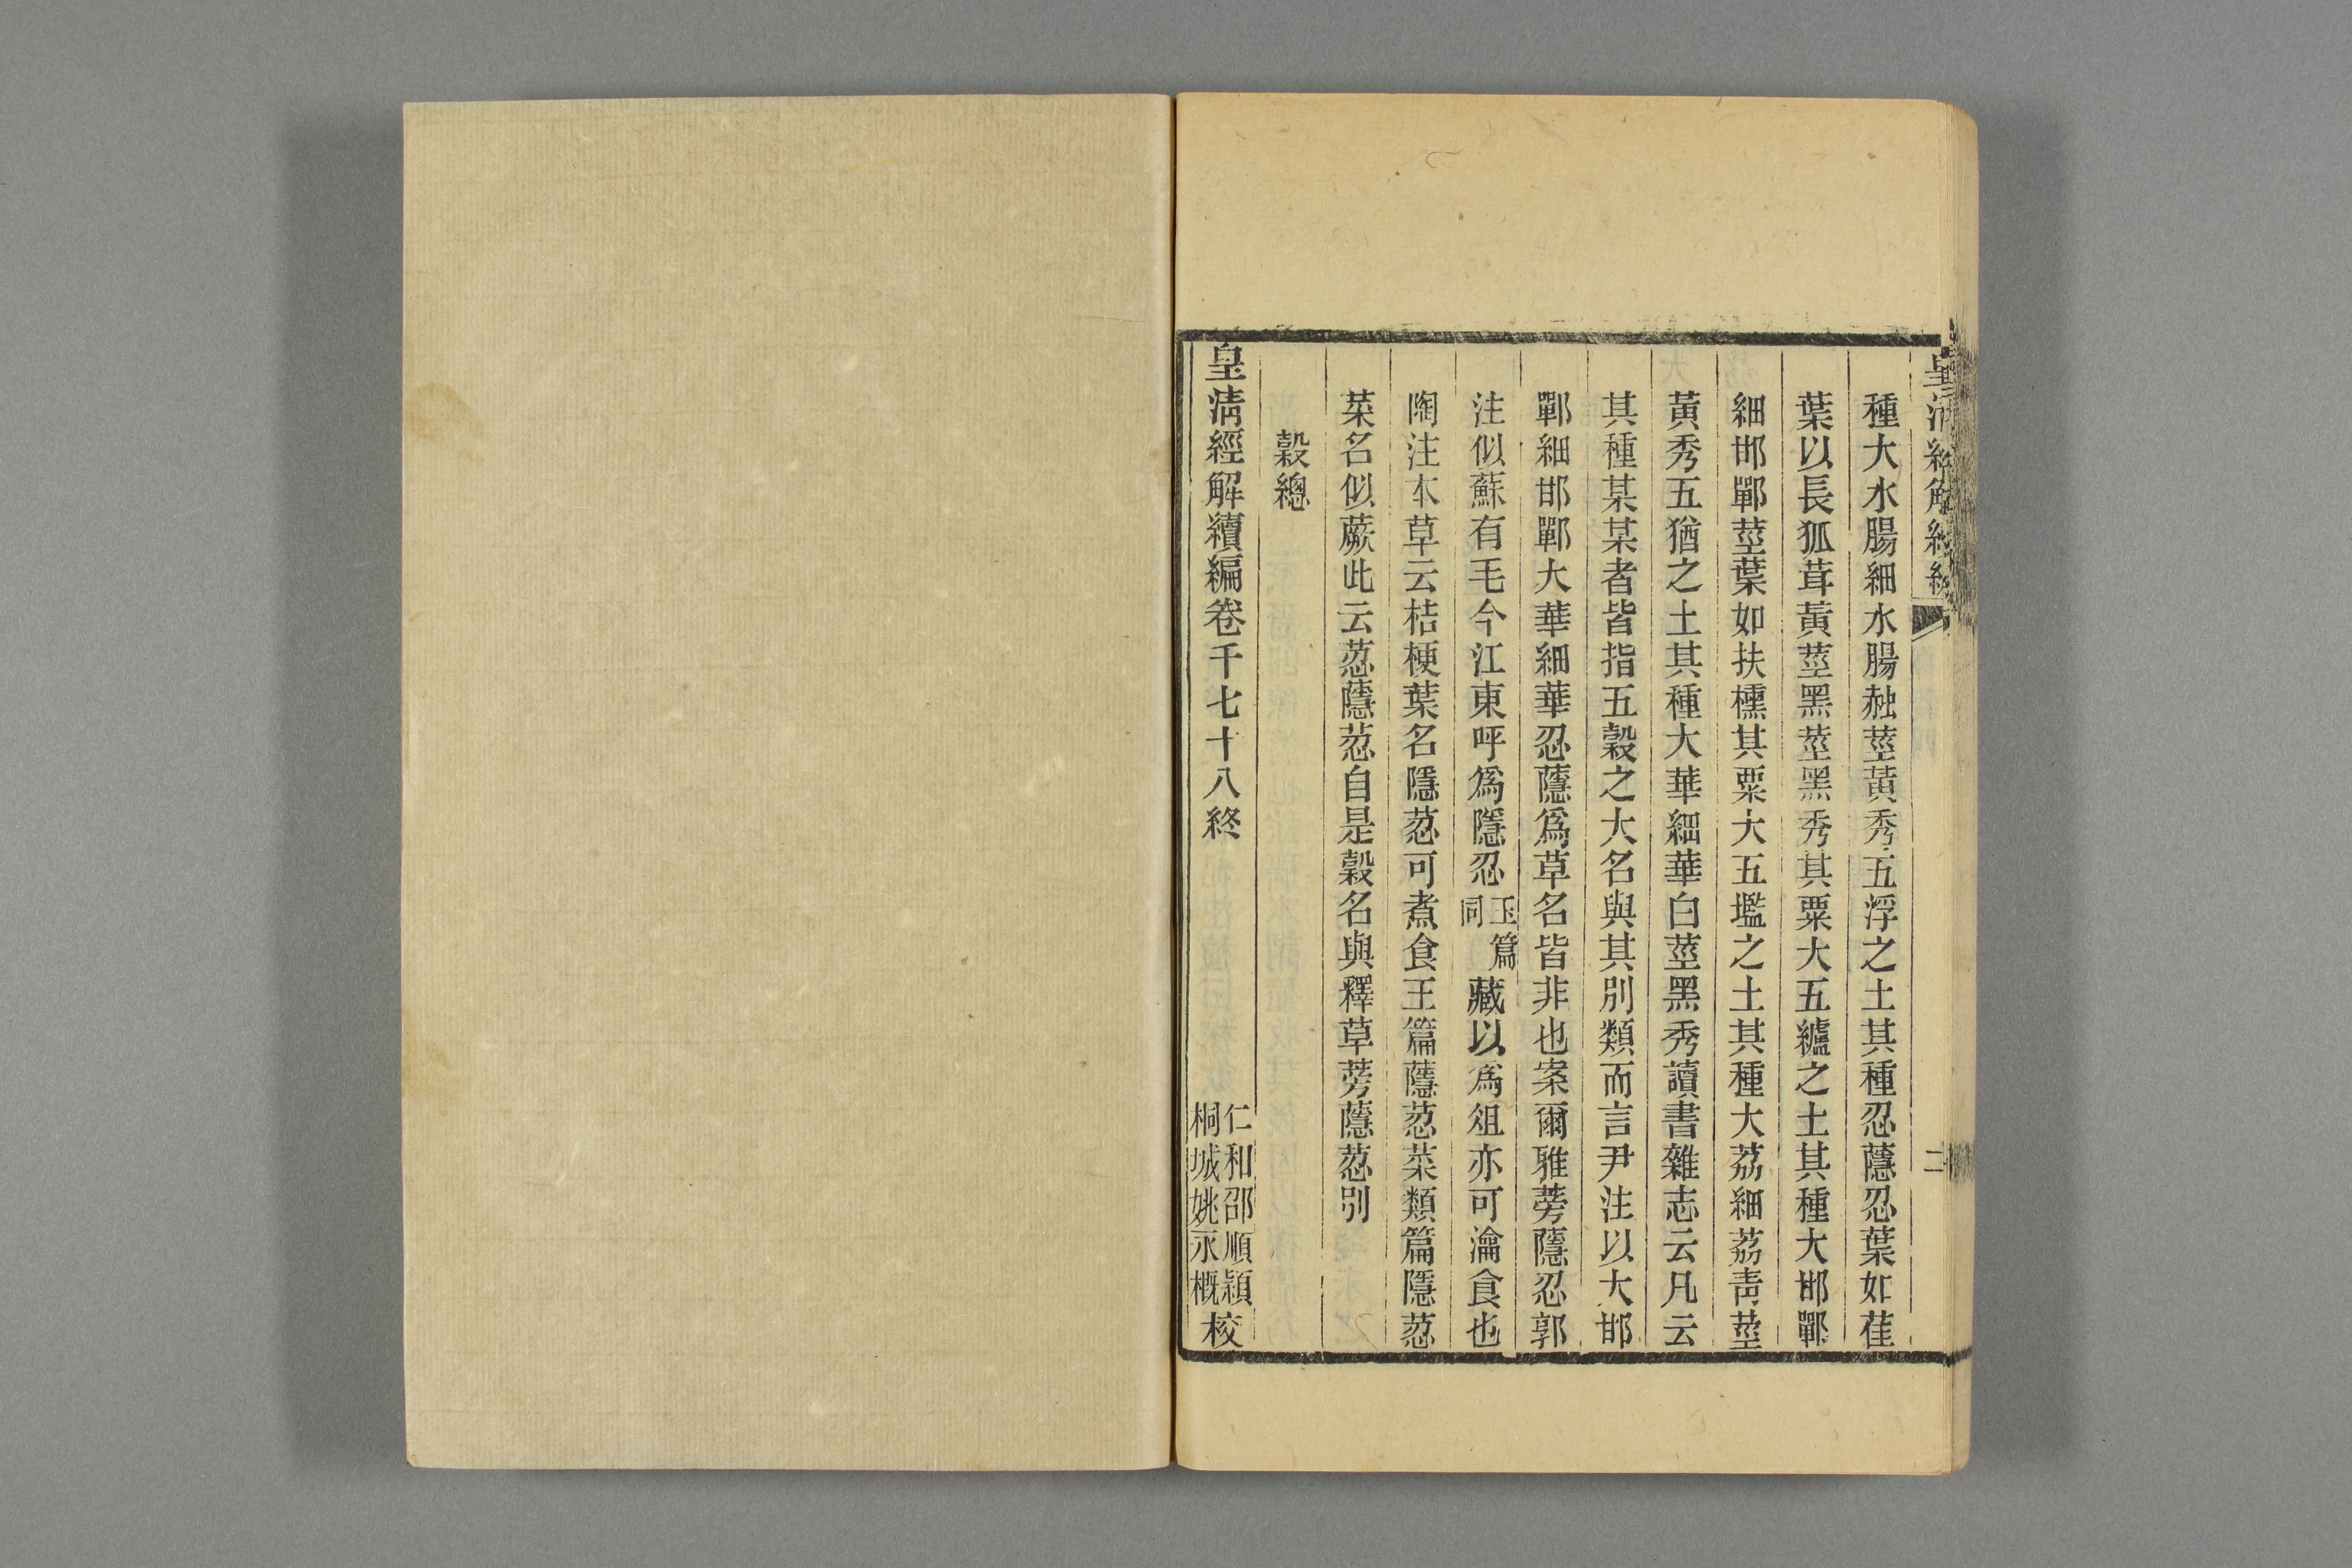 皇清經解續編
二
種大水腸細水腸赨莖黃秀五浮之土其種忍蘟忍葉如萑
葉以長狐茸黃莖黑莖黑秀其粟大五纑之土其種大邯鄲
細邯鄲莖葉如扶櫄其粟大五壏之土其種大荔細荔青莖
黃秀五猶之土其種大華細華白莖黑秀讀書雜志云凡云
其種某某者皆指五穀之大名與其別類而言尹注以大邯
鄲細邯鄲大華細華忍蘟爲草名皆非也案爾雅蒡蘟忍郭
注似蘇有毛今江東呼爲隱忍玉篇同藏以爲俎亦可瀹食也
陶注本草云桔梗葉名隱荵可煮食王篇蘟荵菜類篇隱荵
菜名似蕨此云荵蘟荵自是穀名與釋草蒡蘟荵別
穀總
皇清經解續編卷千七十八終
仁和邵順穎
桐城姚永概校